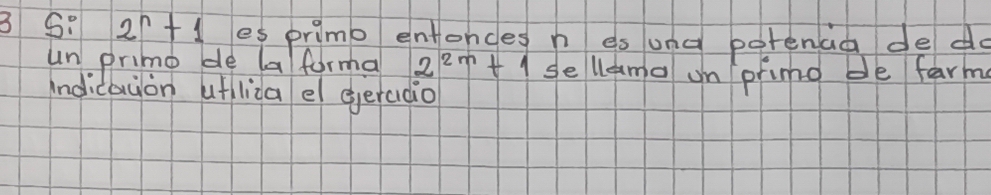 3 Si 2ⁿ + 1 es primo entonces n es una potencia de do
un primo de la forma 2²ᵐ + 1 se llama un primo de farma
indicación utiliza el ejercicio